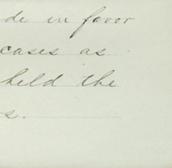 de in favor
cases as
held the
s.